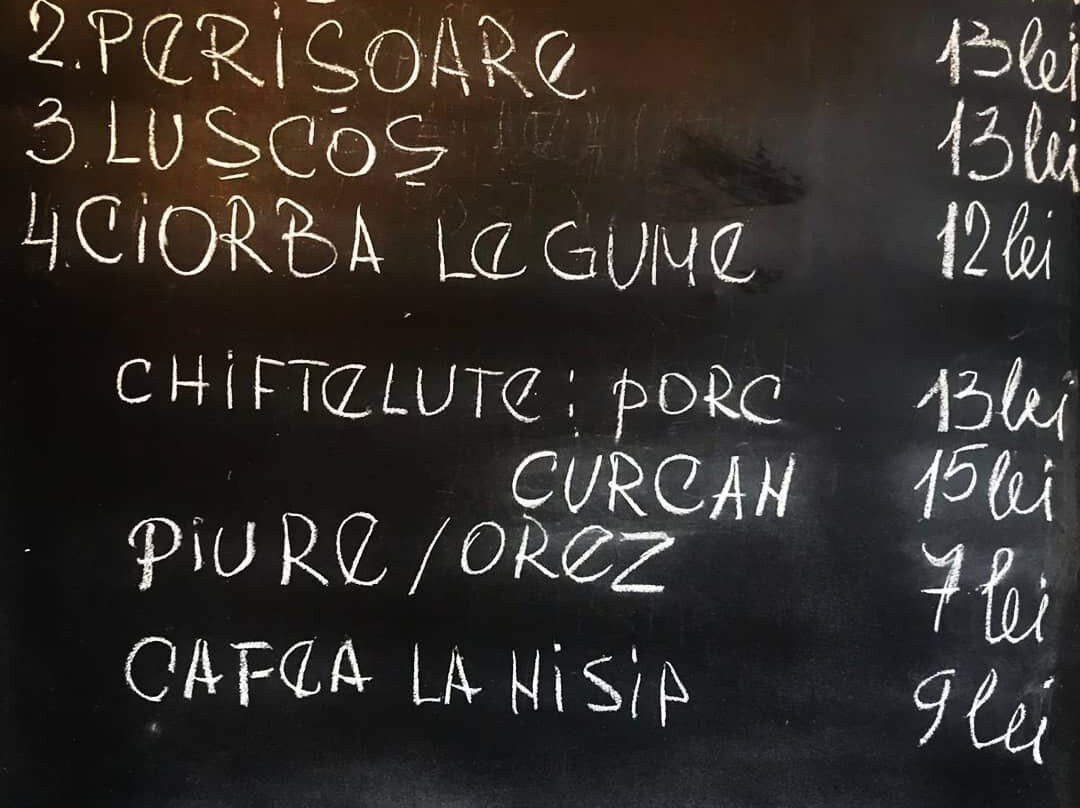 2.PERIȘOARE 13 lei
3.LUȘCOȘ 13 lei
4.CIORBA LEGUME 12 lei
CHIFTELUTE: PORC 13 lei
CURCAN 15 lei
PIURE/OREZ 7 lei
CAFEA LA NISIP 9 lei